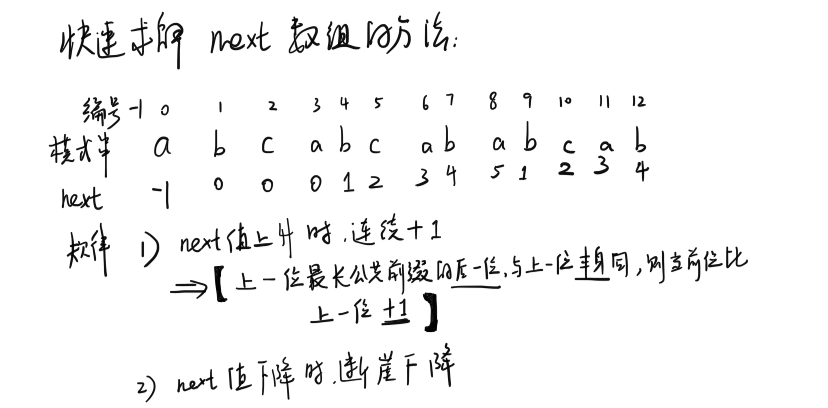 快速求解 next 数组的方法:
编号 -1 0 1 2 3 4 5 6 7 8 9 10 11 12
模式串 a b c a b c a b a b c a b
next -1 0 0 0 1 2 3 4 5 1 2 3 4
规律 1) next值上升时,连续+1
⇒【上一位最长公共前缀的后一位,与上一位相同,则当前位比
上一位 +1】
2) next值下降时,断崖下降